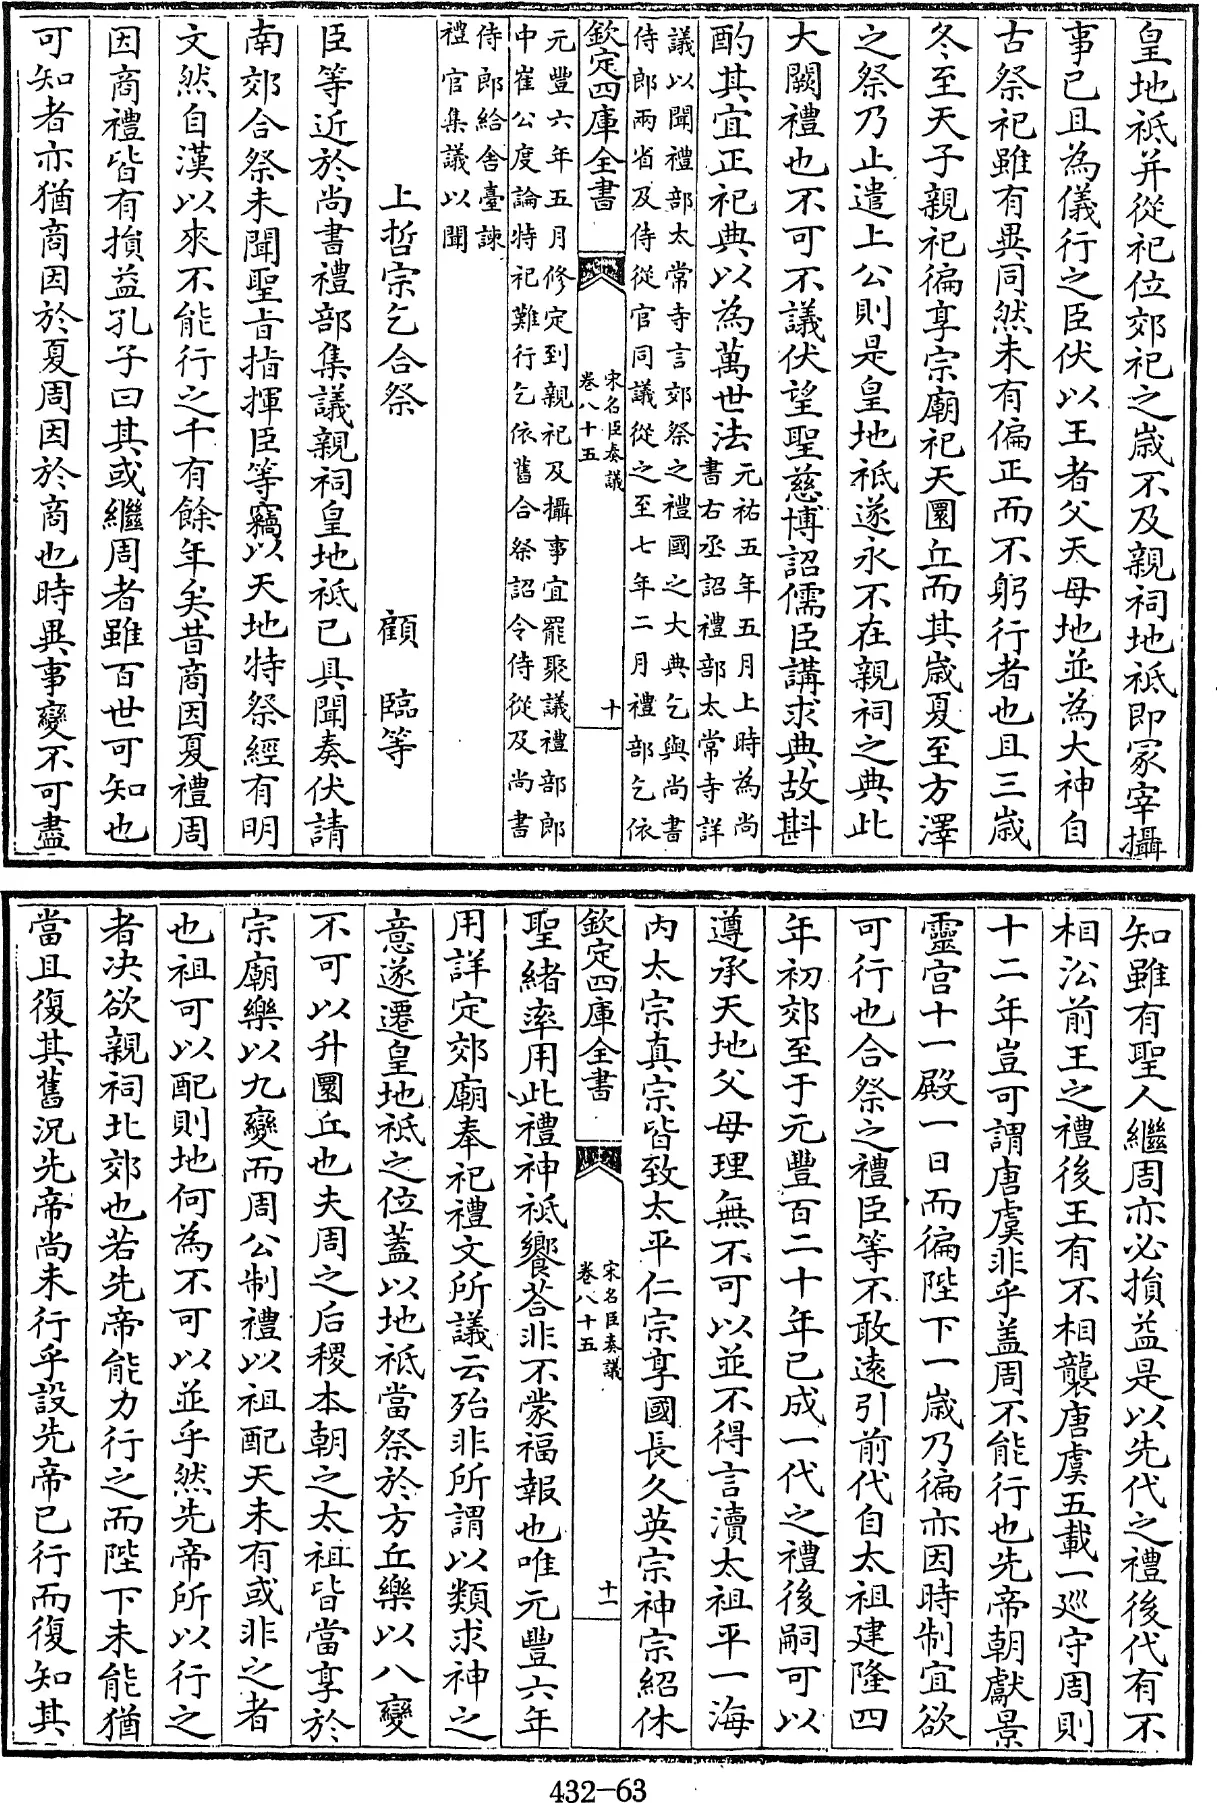 皇地祇并從祀位郊祀之歲不及親祠地祇即冢宰攝
事已且為儀行之臣伏以王者父天母地並為大神自
古祭祀雖有異同然未有偏正而不躬行者也且三歲
冬至天子親祀徧享宗廟祀天圜丘而其歲夏至方澤
之祭乃止遣上公則是皇地祇遂永不在親祠之典此
大闕禮也不可不議伏望聖慈博詔儒臣講求典故斟
酌其宜正祀典以為萬世法元祐五年五月上時為尚
書右丞詔禮部太常寺詳
議以聞禮部太常寺言郊祭之禮國之大典乞與尚書
侍郎兩省及侍從官同議從之至七年二月禮部乞依
欽定四庫全書
宋名臣奏議
卷八十五
十
元豐六年五月修定到親祀及攝事宜罷聚議禮部郎
中崔公度論特祀難行乞依舊合祭詔令侍從及尚書
侍郎給舍臺諫
禮官集議以聞
上哲宗乞合祭 顧臨等
臣等近於尚書禮部集議親祠皇地祇已具聞奏伏請
南郊合祭未聞聖旨指揮臣等竊以天地特祭經有明
文然自漢以來不能行之千有餘年矣昔商因夏禮周
因商禮皆有損益孔子曰其或繼周者雖百世可知也
可知者亦猶商因於夏周因於商也時異事變不可盡
知雖有聖人繼周亦必損益是以先代之禮後代有不
相沿前王之禮後王有不相襲唐虞五載一廵守周則
十二年豈可謂唐虞非乎盖周不能行也先帝朝獻景
靈宫十一殿一日而徧陛下一歲乃徧亦因時制宜欲
可行也合祭之禮臣等不敢遠引前代自太祖建隆四
年初郊至于元豐百二十年已成一代之禮後嗣可以
遵承天地父母理無不可以並不得言瀆太祖平一海
内太宗真宗皆致太平仁宗享國長久英宗神宗紹休
欽定四庫全書
宋名臣奏議
卷八十五
十一
聖緒率用此禮神祇饗荅非不蒙福報也唯元豐六年
用詳定郊廟奉祀禮文所議云殆非所謂以類求神之
意遂遷皇地祇之位蓋以地祇當祭於方丘樂以八變
不可以升圜丘也夫周之后稷本朝之太祖皆當享於
宗廟樂以九變而周公制禮以祖配天未有或非之者
也祖可以配則地何為不可以並乎然先帝所以行之
者决欲親祠北郊也若先帝能力行之而陛下未能猶
當且復其舊況先帝尚未行乎設先帝已行而復知其
432-63